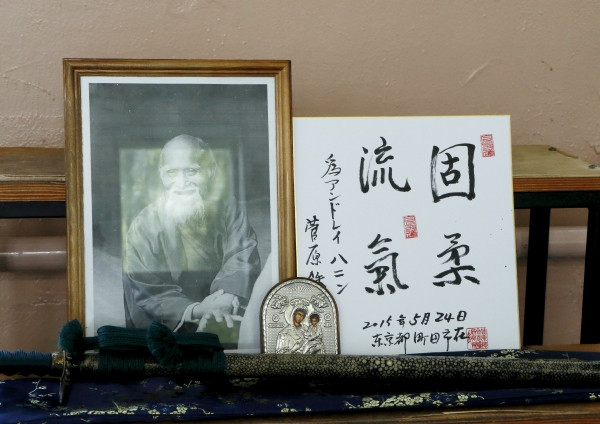 固柔
流氣
為アンドレイ ハニン
菅原
2015年5月24日
东京都町田市在